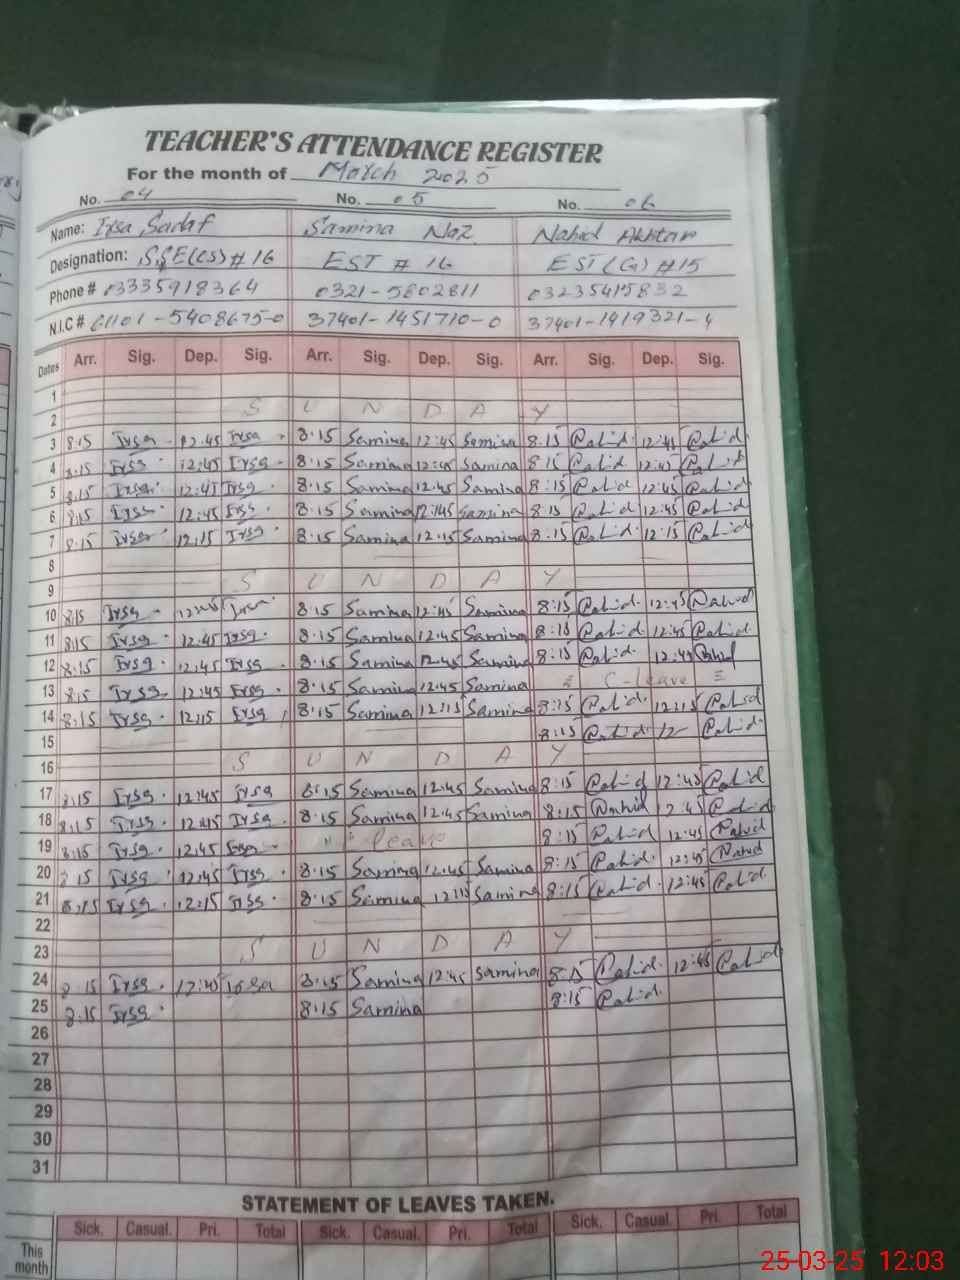 TEACHER'S ATTENDANCE REGISTER
For the month of March 2025
No. 04 No. 05 No. 06
Name: Irsa Sadaf Samina Naz Nahid Akhtar
Designation: SSE(CS)#16 EST #16 EST(G)#15
Phone # 03335918364 0321-5802811 03235415832
N.I.C # 61101-5408675-0 37401-1451710-0 37401-1419321-4
Dates Arr. Sig. Dep. Sig. Arr. Sig. Dep. Sig. Arr. Sig. Dep. Sig.
1
2 S U N D A Y
3 8:15 Irsa 12:45 Irsa 8:15 Samina 12:45 Samina 8:15 Nahid 12:45 Nahid
4 8:15 Irsa 12:45 Irsa 8:15 Samina 12:45 Samina 8:15 Nahid 12:45 Nahid
5 8:15 Irsa 12:45 Irsa 8:15 Samina 12:45 Samina 8:15 Nahid 12:45 Nahid
6 8:15 Irsa 12:45 Irsa 8:15 Samina 12:45 Samina 8:15 Nahid 12:45 Nahid
7 8:15 Irsa 12:15 Irsa 8:15 Samina 12:15 Samina 8:15 Nahid 12:15 Nahid
8
9 S U N D A Y
10 8:15 Irsa 12:45 Irsa 8:15 Samina 12:45 Samina 8:15 Nahid 12:45 Nahid
11 8:15 Irsa 12:45 Irsa 8:15 Samina 12:45 Samina 8:15 Nahid 12:45 Nahid
12 8:15 Irsa 12:45 Irsa 8:15 Samina 12:45 Samina 8:15 Nahid 12:45 Nahid
13 8:15 Irsa 12:45 Irsa 8:15 Samina 12:45 Samina C-leave
14 8:15 Irsa 12:15 Irsa 8:15 Samina 12:15 Samina 8:15 Nahid 12:15 Nahid
15 8:15 Nahid 12 Nahid
16 S U N D A Y
17 8:15 Irsa 12:45 Irsa 8:15 Samina 12:45 Samina 8:15 Nahid 12:45 Nahid
18 8:15 Irsa 12:45 Irsa 8:15 Samina 12:45 Samina 8:15 Nahid 12:45 Nahid
19 8:15 Irsa 12:45 Irsa leave 8:15 Nahid 12:45 Nahid
20 8:15 Irsa 12:45 Irsa 8:15 Samina 12:45 Samina 8:15 Nahid 12:45 Nahid
21 8:15 Irsa 12:15 Irsa 8:15 Samina 12:15 Samina 8:15 Nahid 12:45 Nahid
22
23 S U N D A Y
24 8:15 Irsa 12:45 Irsa 8:15 Samina 12:45 Samina 8:15 Nahid 12:45 Nahid
25 8:15 Irsa 8:15 Samina 8:15 Nahid
26
27
28
29
30
31
STATEMENT OF LEAVES TAKEN.
Sick. Casual. Pri. Total Sick. Casual. Pri. Total Sick. Casual. Pri. Total
This month
25-03-25 12:03